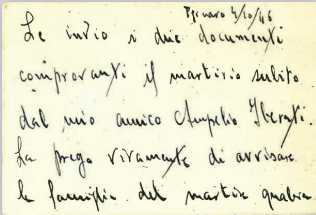 Pesaro 4/10/46
Le invio i due documenti
comprovanti il martirio subito
dal mio amico Ampelio Iberati.
La prego vivamente di avvisare
la famiglia del martire qualora